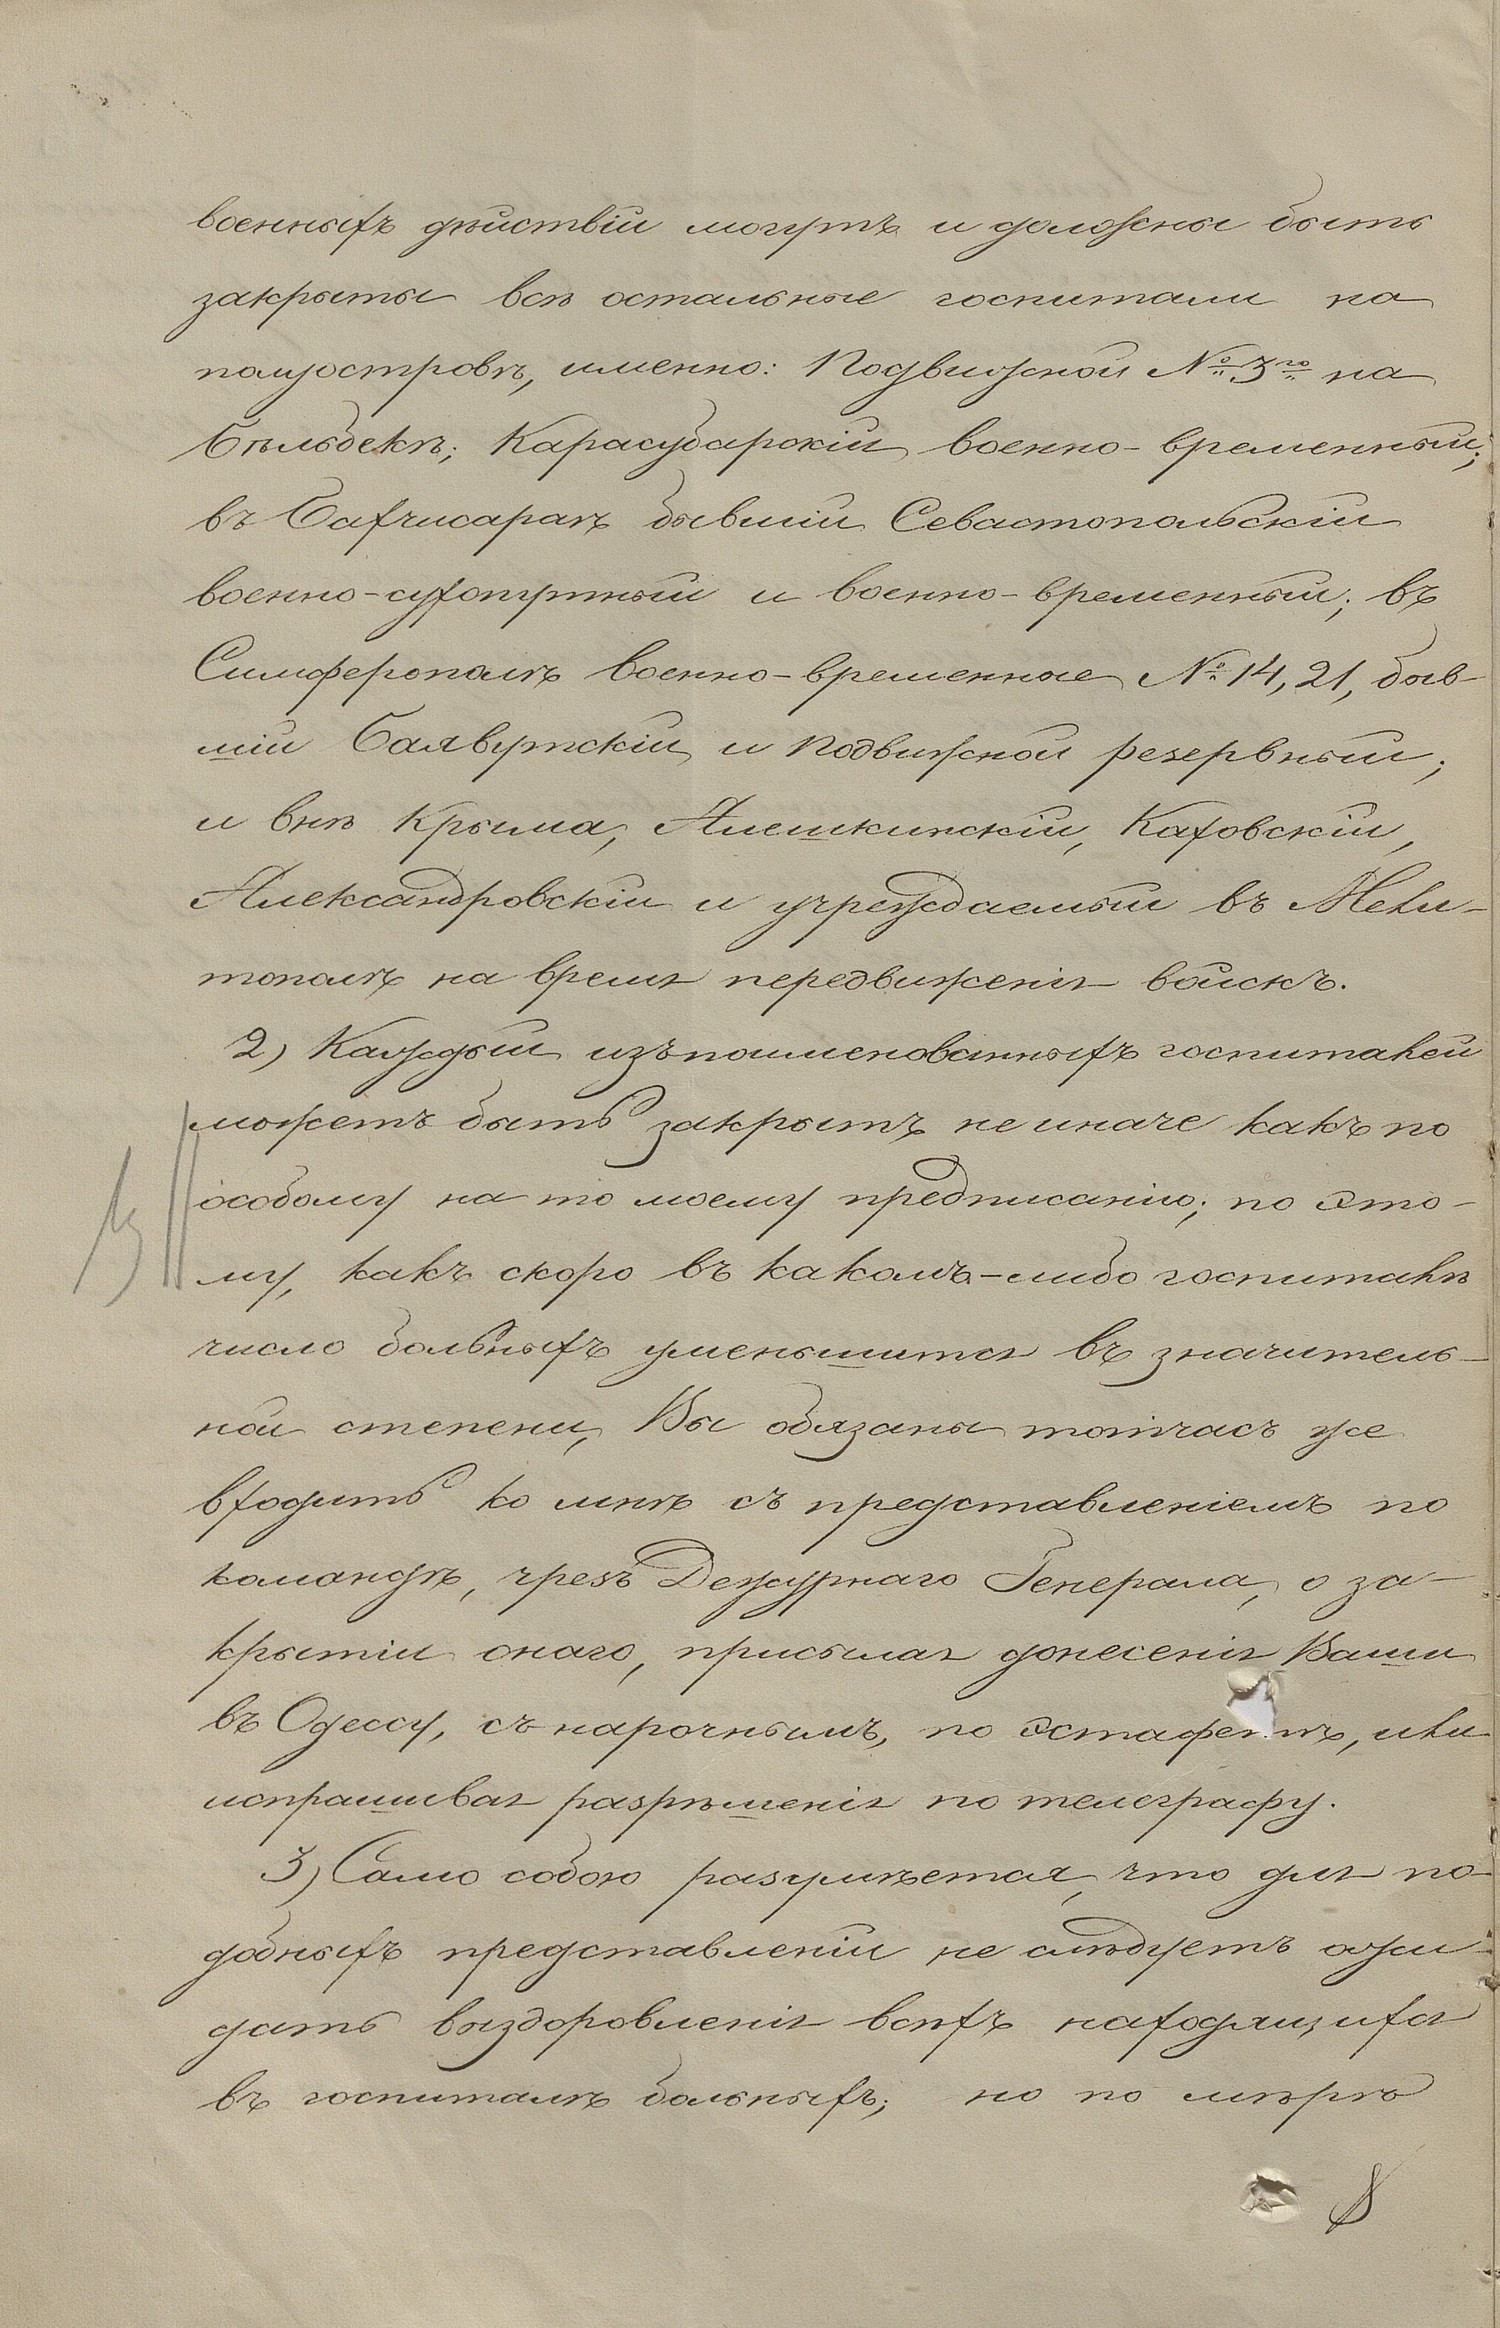 военныхъ дѣйствій могутъ и должны быть
закрыты всѣ остальные госпитали на
полуостровѣ, именно: Подвижной № 3го на
Бѣльбекѣ; Карасубарскій военно-временный;
въ Бахчисараѣ бывшій Севастопольскій
военно-сухопутный и военно-временный; въ
Симферополѣ военно-временные № 14, 21, быв-
шій Саявутскій и Подвижной резервный;
и внѣ Крыма, Алешкинскій, Каховскій,
Александровскій и учреждаемый въ Мели-
тополѣ на время передвиженія войскъ.
2) Каждый изъ поименованныхъ госпиталей
можетъ быть закрытъ не иначе какъ по
особому на то моему предписанію; по это-
му, какъ скоро въ какомъ-либо госпиталѣ
число больныхъ уменьшится въ значитель-
ной степени, Вы обязаны тотчасъ же
входить ко мнѣ съ представленіемъ по
командѣ, чрезъ Дежурнаго Генерала, о за-
крытіи онаго, присылая донесенія Ваши
въ Одессу, съ нарочнымъ, по эстафетѣ, или
испрашивая разрѣшенія по телеграфу.
3) Само собою разумѣется, что для по-
добныхъ представленій не слѣдуетъ ожи-
дать выздоровленія всѣхъ находящихся
въ госпиталѣ больныхъ; но по мѣрѣ